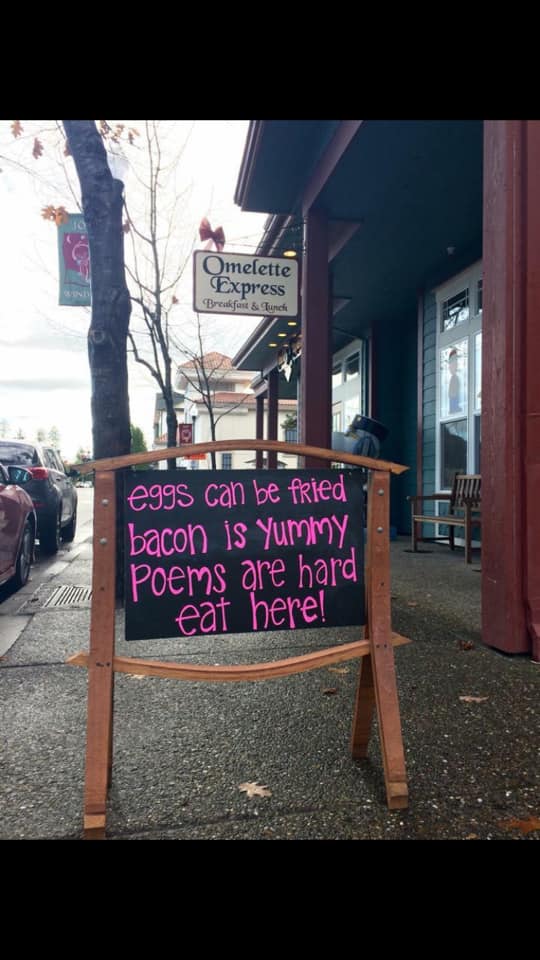 Omelette
Express
Breakfast & Lunch
eggs can be fried
bacon is yummy
Poems are hard
eat here!